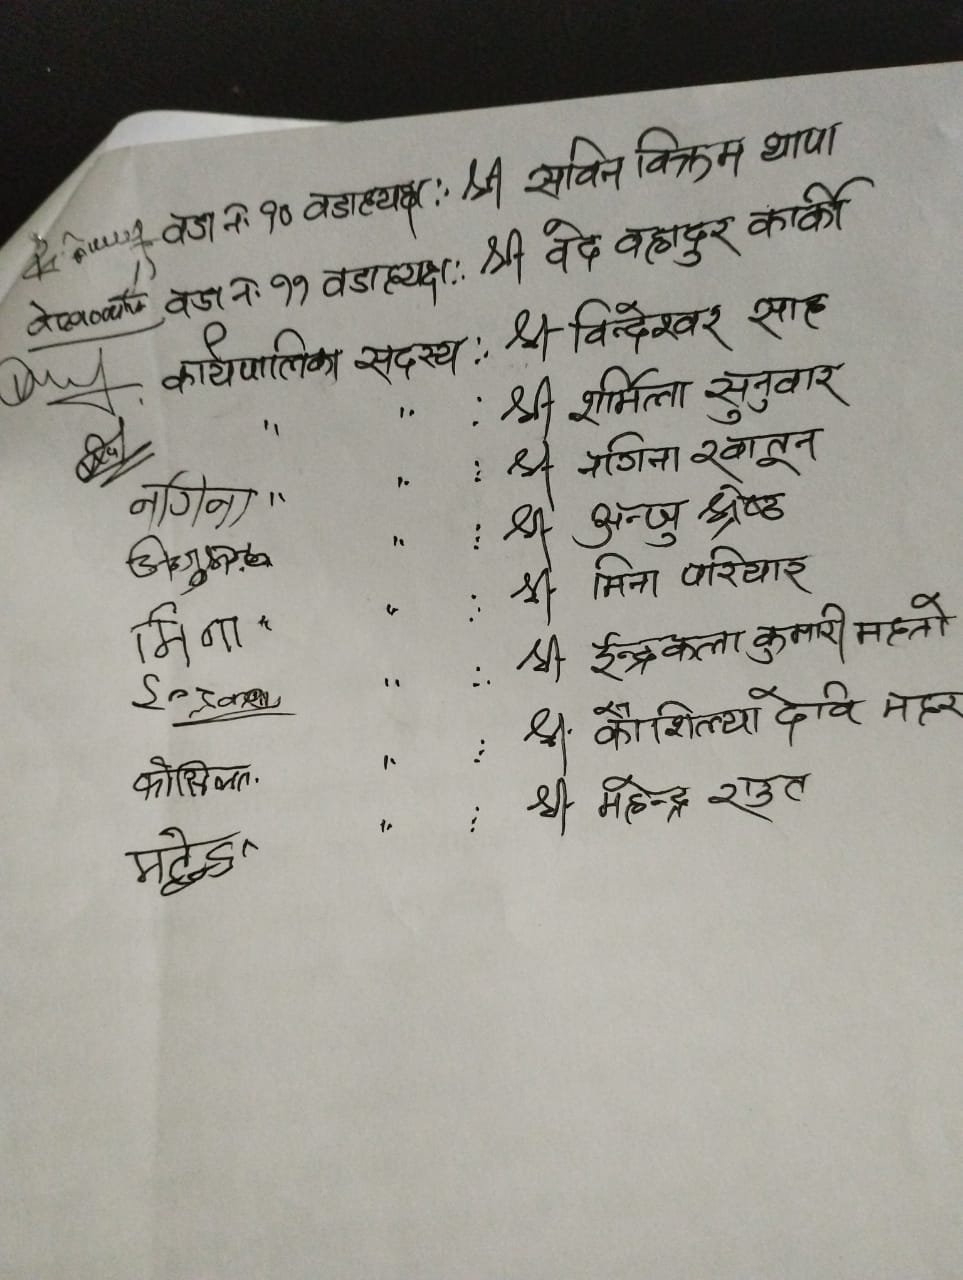 वडा नं: १० वडाध्यक्ष: श्री सविन विक्रम थापा
वडा नं: ११ वडाध्यक्ष: श्री वेद वहादुर कार्की
कार्यपालिका सदस्य: श्री विन्देश्वर साह
" " : श्री शर्मिला सुनुवार
नगिना " " : श्री नगिना खातून
" : श्री अन्जु श्रेष्ठ
मिना " " : श्री मिना परियार
" : श्री ईन्द्रकला कुमारी महतो
" : श्री कौशिल्या देवि महर
" : श्री महेन्द्र राउत